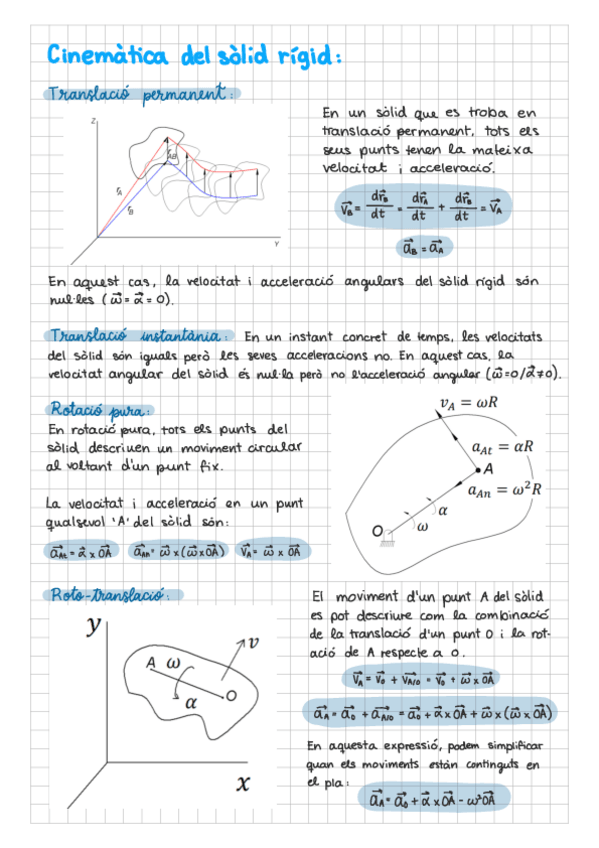 Cinemàtica del sòlid rígid:
Translació permanent:
En un sòlid que es troba en
translació permanent, tots els
seus punts tenen la mateixa
velocitat i acceleració.
Z
r_A
r_B
r_AB
Y
v⃗_B = dr⃗_B/dt = dr⃗_A/dt + dr⃗_B/dt = v⃗_A
a⃗_B = a⃗_A
En aquest cas, la velocitat i acceleració angulars del sòlid rígid són
nul·les (ω⃗ = α⃗ = 0).
Translació instantània: En un instant concret de temps, les velocitats
del sòlid són iguals però les seves acceleracions no. En aquest cas, la
velocitat angular del sòlid és nul·la però no l'acceleració angular (ω⃗=0/α⃗≠0).
Rotació pura:
En rotació pura, tots els punts del
sòlid descriuen un moviment circular
al voltant d'un punt fix.
La velocitat i acceleració en un punt
qualsevol 'A' del sòlid són:
a⃗_At = α⃗ x OA⃗ a⃗_An = ω⃗ x (ω⃗ x OA⃗) v⃗_A = ω⃗ x OA⃗
v_A = ωR
a_At = αR
A
a_An = ω²R
α
O
ω
Roto-translació:
y
v
A ω
O
α
x
El moviment d'un punt A del sòlid
es pot descriure com la combinació
de la translació d'un punt O i la rot-
ació de A respecte a O.
v⃗_A = v⃗_0 + v⃗_A/0 = v⃗_0 + ω⃗ x OA⃗
a⃗_A = a⃗_0 + a⃗_A/0 = a⃗_0 + α⃗ x OA⃗ + ω⃗ x (ω⃗ x OA⃗)
En aquesta expressió, podem simplificar
quan els moviments estàn continguts en
el pla:
a⃗_A = a⃗_0 + α⃗ x OA⃗ - ω²OA⃗